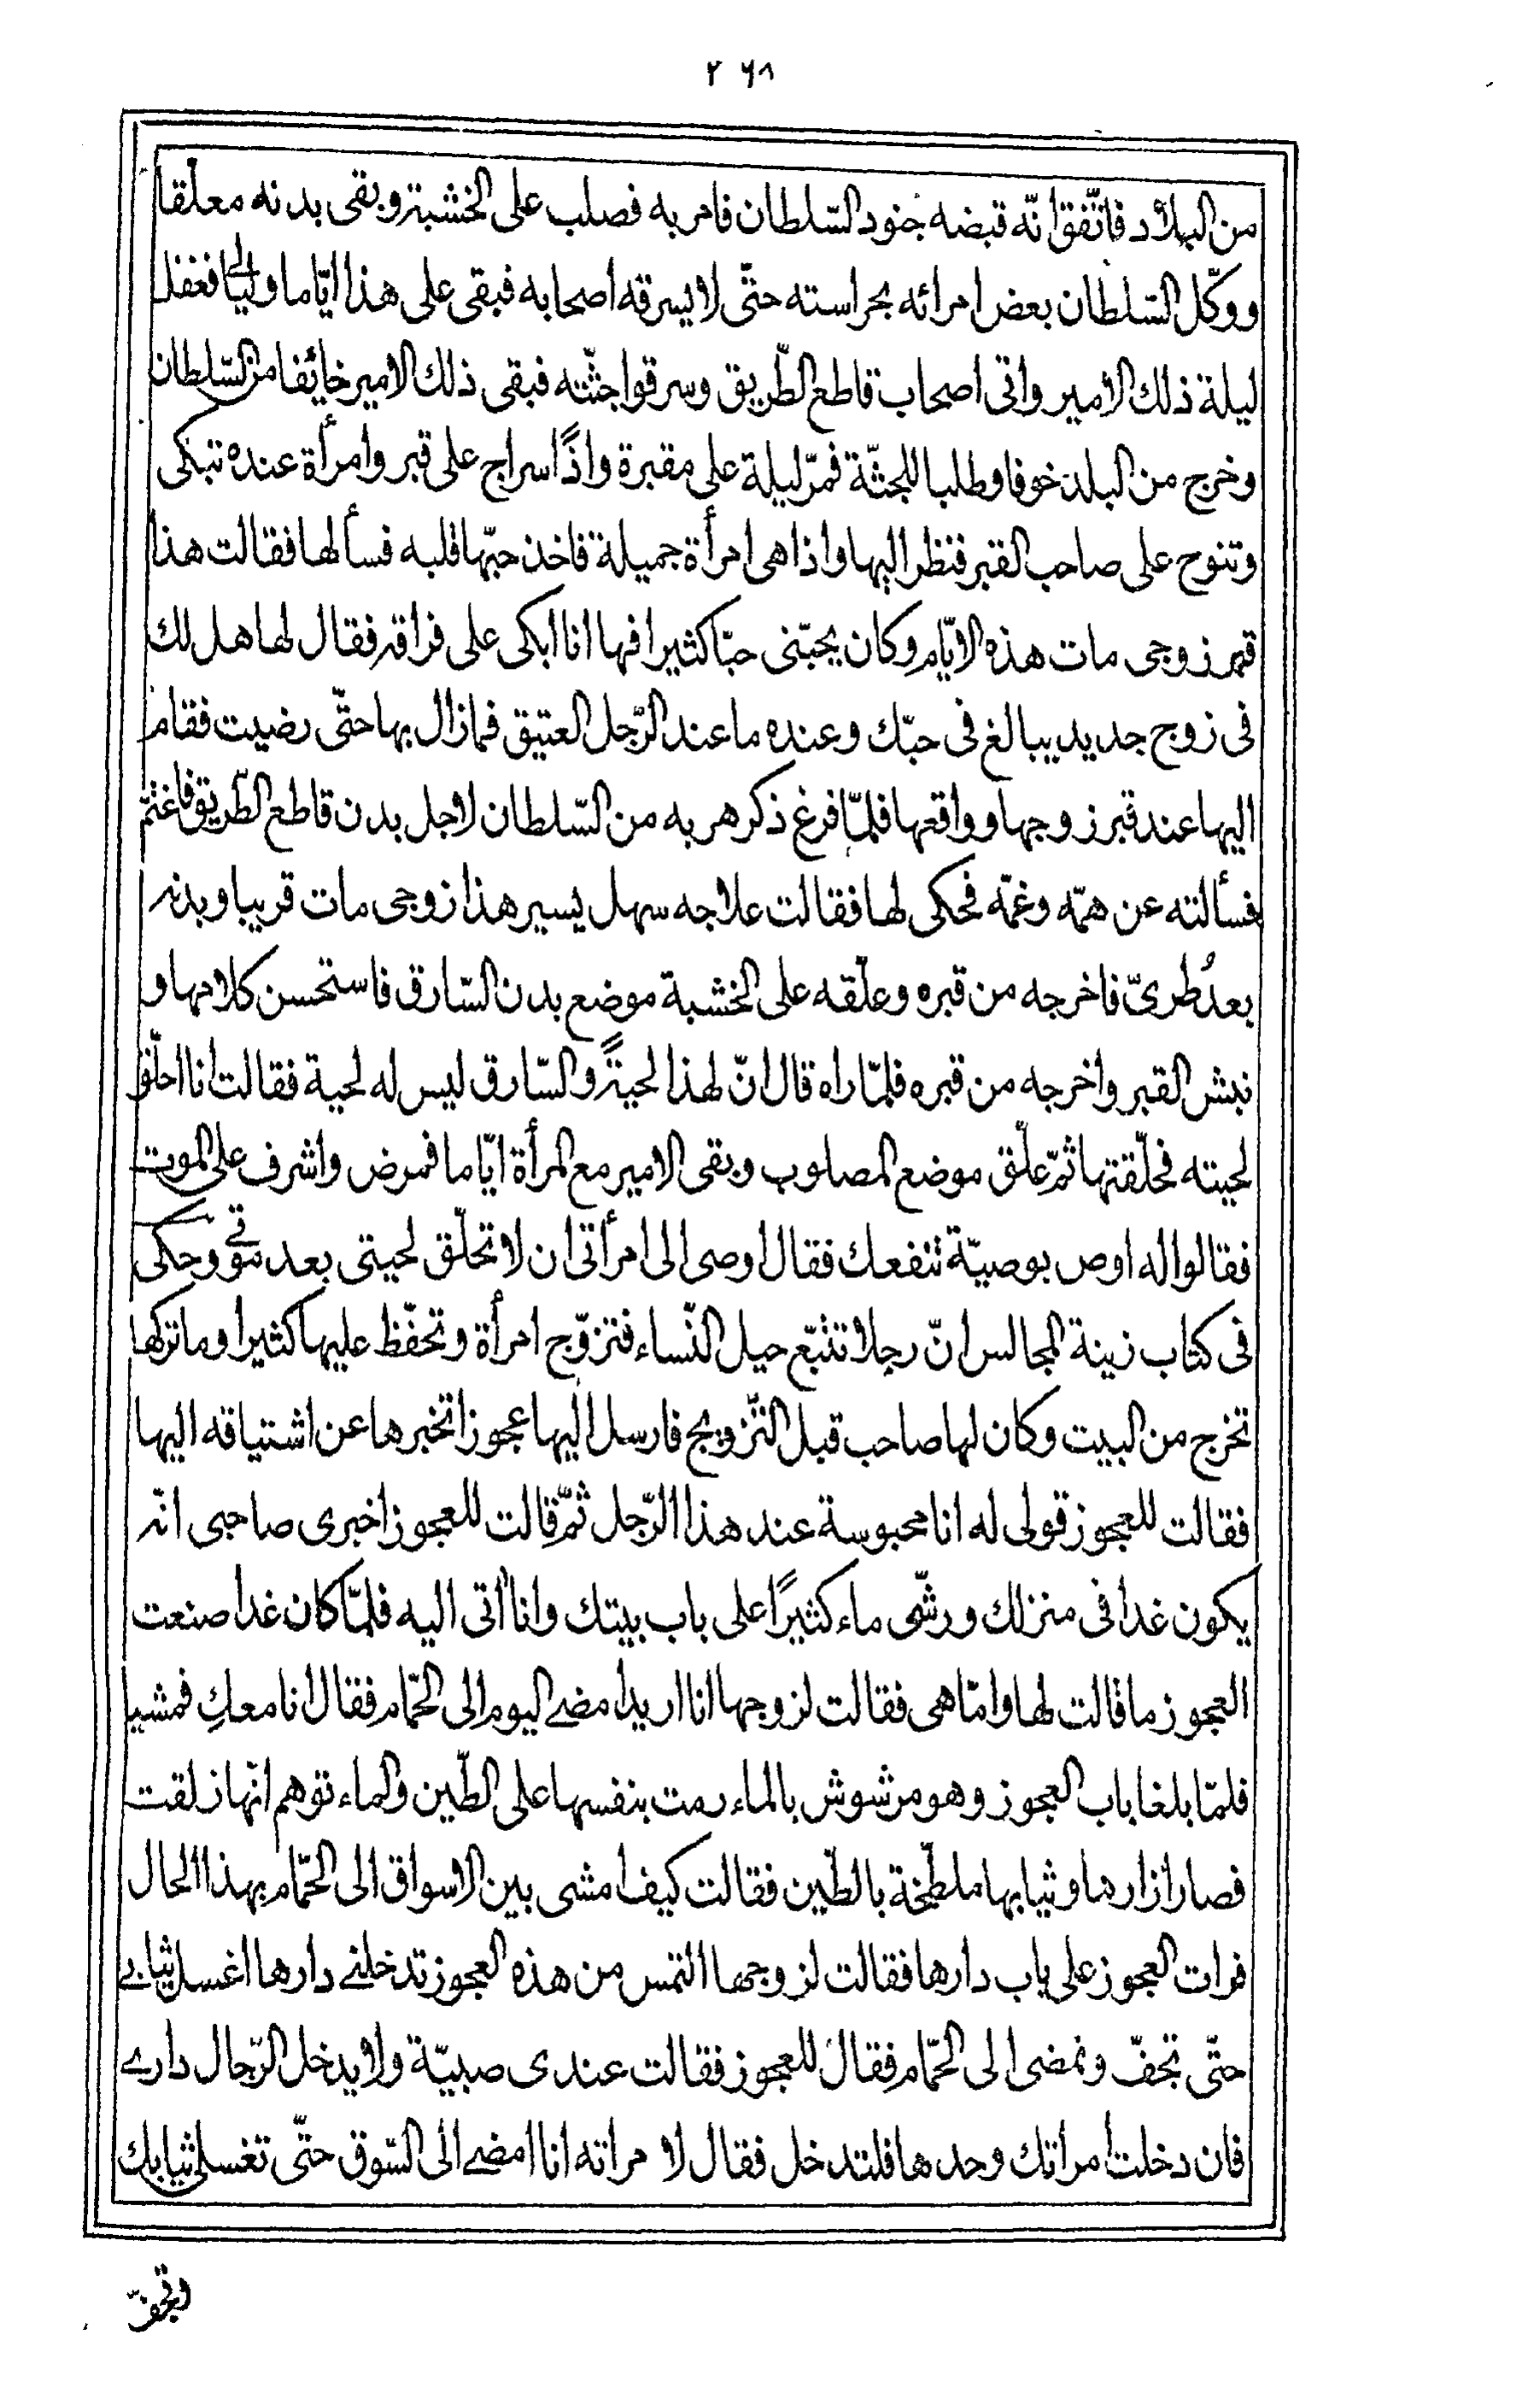 ۲۶۸
من البلاد فاتّفق انّه قبضه جنود السّلطان فامر به فصلب على الخشبة وبقى بدنه معلّقا
ووكّل السّلطان بعض امرائه بحراسته حتّى لا يسرقه اصحابه فبقى على هذا ايّاما وليالى فغفل
ليلة ذلك الامير واتى اصحاب قاطع الطّريق وسرقوا جثّته فبقى ذلك الامير خائفا من السّلطان
وخرج من البلد خوفا وطلبا للجثّة فمرّ ليلة على مقبرة واذًا سراج على قبر وامرأة عنده تبكى
وتنوح على صاحب القبر فنظر اليها واذا هى امرأة جميلة فاخذ حبّها قلبه فسألها فقالت هذا
قبر زوجى مات هذه الايّام وكان يحبّنى حبّا كثيرا فها انا ابكى على فراقه فقال لها هل لك
فى زوج جديد يبالغ فى حبّك وعنده ما عند الرّجل العتيق فمازال بها حتّى رضيت فقام
اليها عند قبر زوجها وواقعها فلمّا فرغ ذكر هربه من السّلطان لاجل بدن قاطع الطّريق فاغتمّ
فسألته عن همّه وغمّه فحكى لها فقالت علاجه سهل يسير هذا زوجى مات قريبا وبدنه
بعدُ طرىّ فاخرجه من قبره وعلّقه على الخشبة موضع بدن السّارق فاستحسن كلامها و
نبش القبر واخرجه من قبره فلمّا راه قال انّ لهذا لحيةً والسّارق ليس له لحية فقالت انا احلّق
لحيته فحلّقتها ثمّ علّق موضع المصلوب وبقى الامير مع المرأة ايّاما فمرض واشرف على الموت
فقالوا له اوص بوصيّة تنفعك فقال اوصى الى امرأتى ان لا تحلّق لحيتى بعد موتى وحكى
فى كتاب زينة المجالس انّ رجلا تتبّع حيل النّساء فتزوّج امرأة وتحفّظ عليها كثيرا وما تركها
تخرج من البيت وكان لها صاحب قبل التّزويج فارسل اليها عجوزا تخبرها عن اشتياقه اليها
فقالت للعجوز قولى له انا محبوسة عند هذا الرّجل ثمّ قالت للعجوز اخبرى صاحبى انّه
يكون غدا فى منزلك ورشّى ماء كثيرًا على باب بيتك وانا اتى اليه فلمّا كان غدا صنعت
العجوز ما قالت لها وامّا هى فقالت لزوجها انا اريد امضى اليوم الى الحمّام فقال انا معكِ فمشيا
فلمّا بلغا باب العجوز وهو مرشوش بالماء رمت بنفسها على الطّين والماء توهم انّها زلقت
فصار ازارها وثيابها ملطّخة بالطّين فقالت كيف امشى بين الاسواق الى الحمّام بهذا الحال
فرات العجوز على باب دارها فقالت لزوجها التمس من هذه العجوز تدخلنى دارها اغسل ثيابى
حتّى تجفّ ونمضى الى الحمّام فقال للعجوز فقالت عندى صبيّة ولا يدخل الرّجال دارى
فان دخلت امراتك وحدها فلتدخل فقال لامراته انا امضى الى السّوق حتّى تغسلى ثيابك
وتجفّ